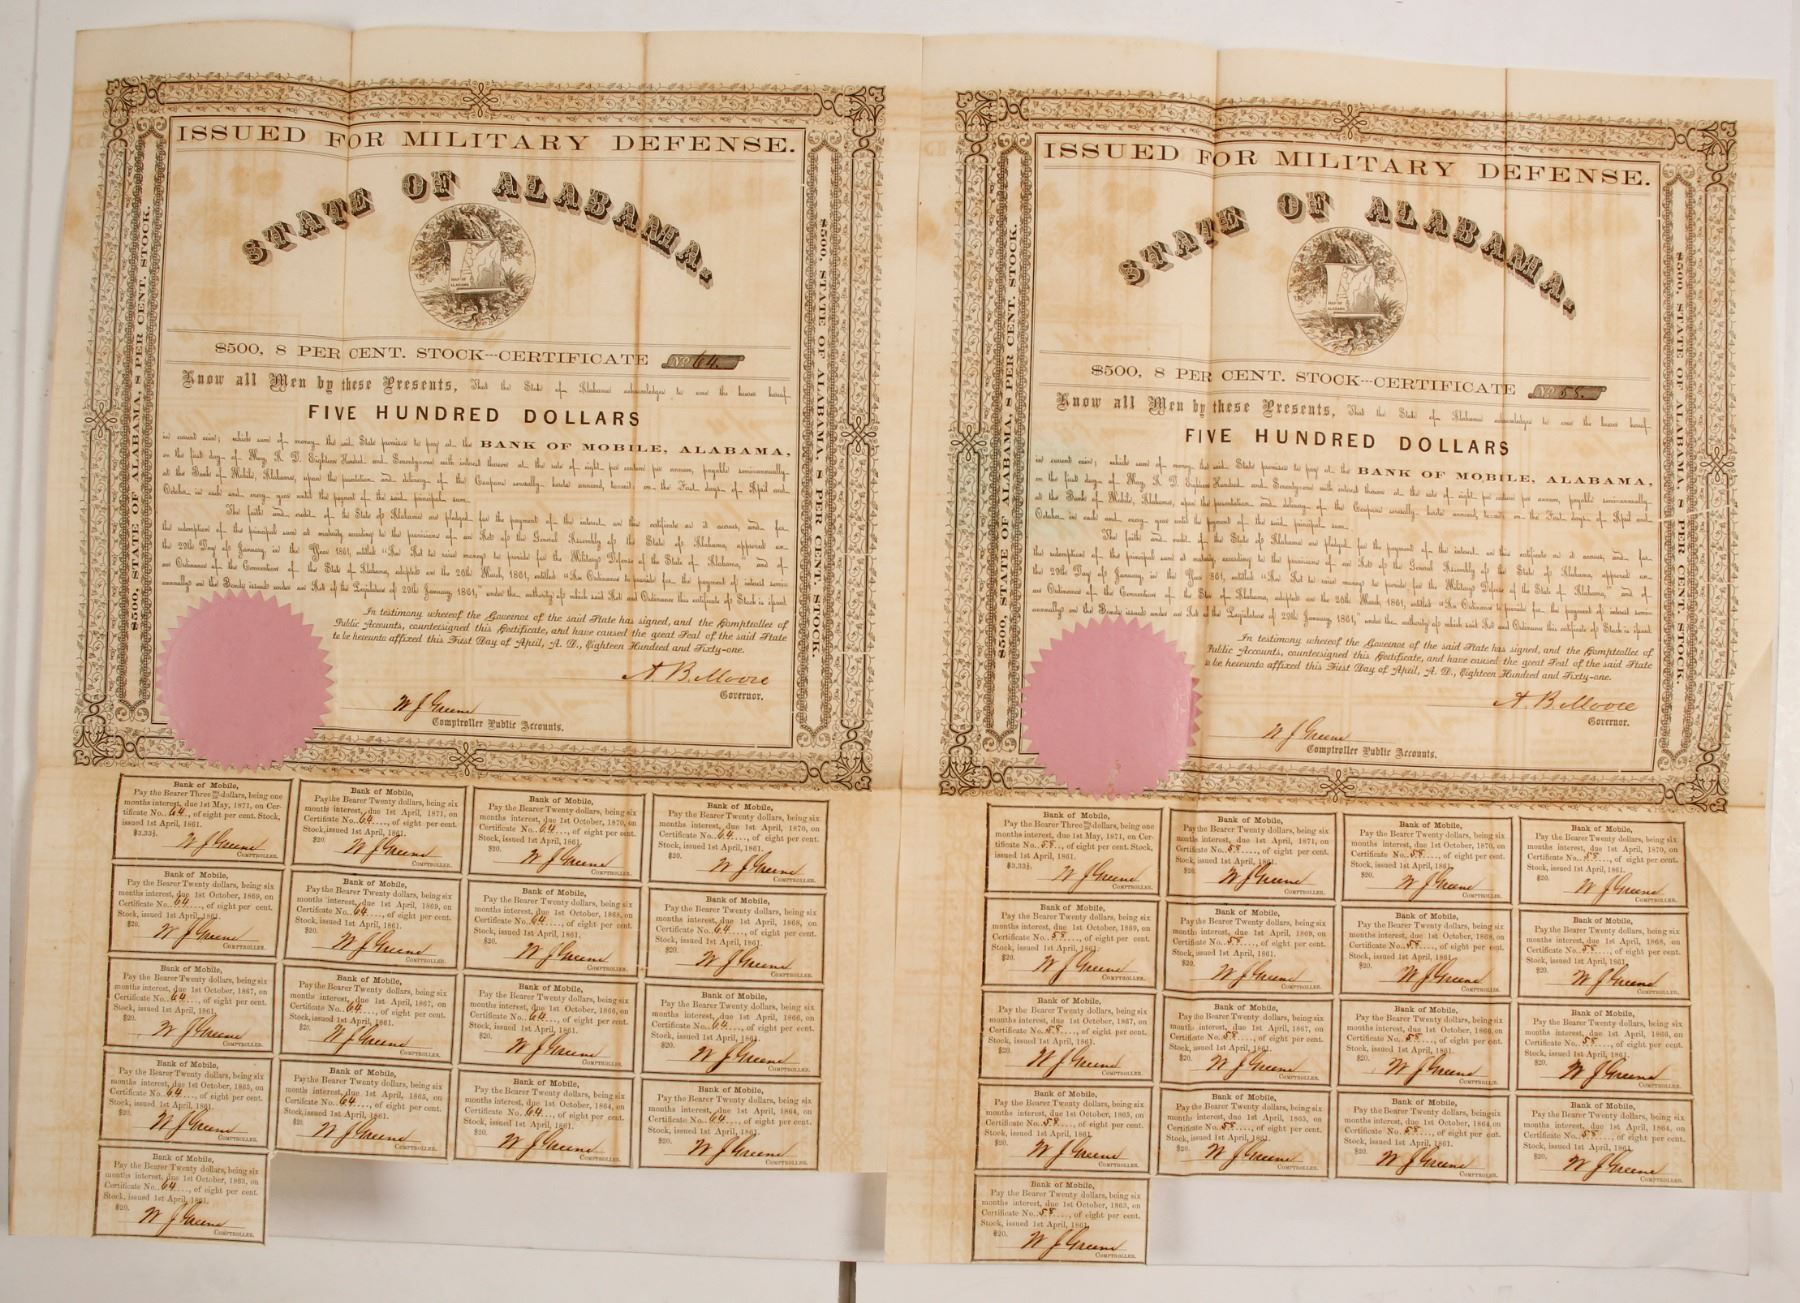 ISSUED FOR MILITARY DEFENSE.
STATE OF ALABAMA.
MAP OF
ALABAMA
$500, 8 PER CENT. STOCK---CERTIFICATE No. 64.
Know all Men by these Presents, That the State of Alabama acknowledges to owe the bearer hereof
FIVE HUNDRED DOLLARS
in current coin; which sum of money the said State promises to pay at the BANK OF MOBILE, ALABAMA,
on the first day of May A. D. Eighteen Hundred and Seventy-one with interest thereon at the rate of eight per centum per annum, payable semi-annually
at the Bank of Mobile, Alabama, upon the presentation and delivery of the Coupons severally hereto annexed, to-wit: on the First days of April and
October in each and every year until the payment of the said principal sum.
The faith and credit of the State of Alabama are pledged for the payment of the interest on this certificate as it accrues, and for
the redemption of the principal sum at maturity according to the provisions of an Act of the General Assembly of the State of Alabama, approved on
the 29th Day of January, in the Year 1861, entitled "An Act to raise money to provide for the Military Defense of the State of Alabama," and of
an Ordinance of the Convention of the State of Alabama, adopted on the 20th March, 1861, entitled "An Ordinance to provide for the payment of interest semi-
annually on the Bonds issued under an Act of the Legislature of 29th January, 1861," under the authority of which said Act and Ordinance this certificate of Stock is issued.
In testimony whereof the Governor of the said State has signed, and the Comptroller of
Public Accounts, countersigned this Certificate, and have caused the great Seal of the said State
to be hereunto affixed this First Day of April, A. D., Eighteen Hundred and Sixty-one.
A. B. Moore
Governor.
W J Greene
Comptroller Public Accounts.
$500, STATE OF ALABAMA, 8 PER CENT. STOCK.
$500, STATE OF ALABAMA, 8 PER CENT. STOCK.
Bank of Mobile,
Pay the Bearer Three dollars, being one
months interest, due 1st May, 1871, on Cer-
tificate No. 64., of eight per cent. Stock,
issued 1st April, 1861.
$3,33⅓.
W J Greene
COMPTROLLER.
Bank of Mobile,
Pay the Bearer Twenty dollars, being six
months interest, due 1st April, 1871, on
Certificate No. 64...., of eight per cent.
Stock, issued 1st April, 1861.
$20.
W J Greene
COMPTROLLER.
Bank of Mobile,
Pay the Bearer Twenty dollars, being six
months interest, due 1st October, 1870, on
Certificate No. 64...., of eight per cent.
Stock, issued 1st April, 1861.
$20.
W J Greene
COMPTROLLER.
Bank of Mobile,
Pay the Bearer Twenty dollars, being six
months interest, due 1st April, 1870, on
Certificate No. 64...., of eight per cent.
Stock, issued 1st April, 1861.
$20.
W J Greene
COMPTROLLER.
Bank of Mobile,
Pay the Bearer Twenty dollars, being six
months interest, due 1st October, 1869, on
Certificate No. 64...., of eight per cent.
Stock, issued 1st April, 1861.
$20.
W J Greene
COMPTROLLER.
Bank of Mobile,
Pay the Bearer Twenty dollars, being six
months interest, due 1st April, 1869, on
Certificate No. 64...., of eight per cent.
Stock, issued 1st April, 1861.
$20.
W J Greene
COMPTROLLER.
Bank of Mobile,
Pay the Bearer Twenty dollars, being six
months interest, due 1st October, 1868, on
Certificate No. 64...., of eight per cent.
Stock, issued 1st April, 1861.
$20.
W J Greene
COMPTROLLER.
Bank of Mobile,
Pay the Bearer Twenty dollars, being six
months interest, due 1st April, 1868, on
Certificate No. 64...., of eight per cent.
Stock, issued 1st April, 1861.
$20.
W J Greene
COMPTROLLER.
Bank of Mobile,
Pay the Bearer Twenty dollars, being six
months interest, due 1st October, 1867, on
Certificate No. 64...., of eight per cent.
Stock, issued 1st April, 1861.
$20.
W J Greene
COMPTROLLER.
Bank of Mobile,
Pay the Bearer Twenty dollars, being six
months interest, due 1st April, 1867, on
Certificate No. 64...., of eight per cent.
Stock, issued 1st April, 1861.
$20.
W J Greene
COMPTROLLER.
Bank of Mobile,
Pay the Bearer Twenty dollars, being six
months interest, due 1st October, 1866, on
Certificate No. 64...., of eight per cent.
Stock, issued 1st April, 1861.
$20.
W J Greene
COMPTROLLER.
Bank of Mobile,
Pay the Bearer Twenty dollars, being six
months interest, due 1st April, 1866, on
Certificate No. 64...., of eight per cent.
Stock, issued 1st April, 1861.
$20.
W J Greene
COMPTROLLER.
Bank of Mobile,
Pay the Bearer Twenty dollars, being six
months interest, due 1st October, 1865, on
Certificate No. 64...., of eight per cent.
Stock, issued 1st April, 1861.
$20.
W J Greene
COMPTROLLER.
Bank of Mobile,
Pay the Bearer Twenty dollars, being six
months interest, due 1st April, 1865, on
Certificate No. 64...., of eight per cent.
Stock, issued 1st April, 1861.
$20.
W J Greene
COMPTROLLER.
Bank of Mobile,
Pay the Bearer Twenty dollars, being six
months interest, due 1st October, 1864, on
Certificate No. 64...., of eight per cent.
Stock, issued 1st April, 1861.
$20.
W J Greene
COMPTROLLER.
Bank of Mobile,
Pay the Bearer Twenty dollars, being six
months interest, due 1st April, 1864, on
Certificate No. 64...., of eight per cent.
Stock, issued 1st April, 1861.
$20.
W J Greene
COMPTROLLER.
Bank of Mobile,
Pay the Bearer Twenty dollars, being six
months interest, due 1st October, 1863, on
Certificate No. 64...., of eight per cent.
Stock, issued 1st April, 1861.
$20.
W J Greene
COMPTROLLER.
ISSUED FOR MILITARY DEFENSE.
STATE OF ALABAMA.
MAP OF
ALABAMA
$500, 8 PER CENT. STOCK---CERTIFICATE No.
Know all Men by these Presents, That the State of Alabama acknowledges to owe the bearer hereof
FIVE HUNDRED DOLLARS
in current coin; which sum of money the said State promises to pay at the BANK OF MOBILE, ALABAMA,
on the first day of May A. D. Eighteen Hundred and Seventy-one with interest thereon at the rate of eight per centum per annum, payable semi-annually
at the Bank of Mobile, Alabama, upon the presentation and delivery of the Coupons severally hereto annexed, to-wit: on the First days of April and
October in each and every year until the payment of the said principal sum.
The faith and credit of the State of Alabama are pledged for the payment of the interest on this certificate as it accrues, and for
the redemption of the principal sum at maturity according to the provisions of an Act of the General Assembly of the State of Alabama, approved on
the 29th Day of January, in the Year 1861, entitled "An Act to raise money to provide for the Military Defense of the State of Alabama," and of
an Ordinance of the Convention of the State of Alabama, adopted on the 20th March, 1861, entitled "An Ordinance to provide for the payment of interest semi-
annually on the Bonds issued under an Act of the Legislature of 29th January, 1861," under the authority of which said Act and Ordinance this certificate of Stock is issued.
In testimony whereof the Governor of the said State has signed, and the Comptroller of
Public Accounts, countersigned this Certificate, and have caused the great Seal of the said State
to be hereunto affixed this First Day of April, A. D., Eighteen Hundred and Sixty-one.
A. B. Moore
Governor.
W J Greene
Comptroller Public Accounts.
$500, STATE OF ALABAMA, 8 PER CENT. STOCK.
$500, STATE OF ALABAMA, 8 PER CENT. STOCK.
Bank of Mobile,
Pay the Bearer Three dollars, being one
months interest, due 1st May, 1871, on Cer-
tificate No. 58., of eight per cent. Stock,
issued 1st April, 1861.
$3,33⅓.
W J Greene
COMPTROLLER.
Bank of Mobile,
Pay the Bearer Twenty dollars, being six
months interest, due 1st April, 1871, on
Certificate No. 58...., of eight per cent.
Stock, issued 1st April, 1861.
$20.
W J Greene
COMPTROLLER.
Bank of Mobile,
Pay the Bearer Twenty dollars, being six
months interest, due 1st October, 1870, on
Certificate No. 58...., of eight per cent.
Stock, issued 1st April, 1861.
$20.
W J Greene
COMPTROLLER.
Bank of Mobile,
Pay the Bearer Twenty dollars, being six
months interest, due 1st April, 1870, on
Certificate No. 58...., of eight per cent.
Stock, issued 1st April, 1861.
$20.
W J Greene
COMPTROLLER.
Bank of Mobile,
Pay the Bearer Twenty dollars, being six
months interest, due 1st October, 1869, on
Certificate No. 58...., of eight per cent.
Stock, issued 1st April, 1861.
$20.
W J Greene
COMPTROLLER.
Bank of Mobile,
Pay the Bearer Twenty dollars, being six
months interest, due 1st April, 1869, on
Certificate No. 58...., of eight per cent.
Stock, issued 1st April, 1861.
$20.
W J Greene
COMPTROLLER.
Bank of Mobile,
Pay the Bearer Twenty dollars, being six
months interest, due 1st October, 1868, on
Certificate No. 58...., of eight per cent.
Stock, issued 1st April, 1861.
$20.
W J Greene
COMPTROLLER.
Bank of Mobile,
Pay the Bearer Twenty dollars, being six
months interest, due 1st April, 1868, on
Certificate No. 58...., of eight per cent.
Stock, issued 1st April, 1861.
$20.
W J Greene
COMPTROLLER.
Bank of Mobile,
Pay the Bearer Twenty dollars, being six
months interest, due 1st October, 1867, on
Certificate No. 58...., of eight per cent.
Stock, issued 1st April, 1861.
$20.
W J Greene
COMPTROLLER.
Bank of Mobile,
Pay the Bearer Twenty dollars, being six
months interest, due 1st April, 1867, on
Certificate No. 58...., of eight per cent.
Stock, issued 1st April, 1861.
$20.
W J Greene
COMPTROLLER.
Bank of Mobile,
Pay the Bearer Twenty dollars, being six
months interest, due 1st October, 1866, on
Certificate No. 58...., of eight per cent.
Stock, issued 1st April, 1861.
$20.
W J Greene
COMPTROLLER.
Bank of Mobile,
Pay the Bearer Twenty dollars, being six
months interest, due 1st April, 1866, on
Certificate No. 58...., of eight per cent.
Stock, issued 1st April, 1861.
$20.
W J Greene
COMPTROLLER.
Bank of Mobile,
Pay the Bearer Twenty dollars, being six
months interest, due 1st October, 1865, on
Certificate No. 58...., of eight per cent.
Stock, issued 1st April, 1861.
$20.
W J Greene
COMPTROLLER.
Bank of Mobile,
Pay the Bearer Twenty dollars, being six
months interest, due 1st April, 1865, on
Certificate No. 58...., of eight per cent.
Stock, issued 1st April, 1861.
$20.
W J Greene
COMPTROLLER.
Bank of Mobile,
Pay the Bearer Twenty dollars, being six
months interest, due 1st October, 1864, on
Certificate No. 58...., of eight per cent.
Stock, issued 1st April, 1861.
$20.
W J Greene
COMPTROLLER.
Bank of Mobile,
Pay the Bearer Twenty dollars, being six
months interest, due 1st April, 1864, on
Certificate No. 58...., of eight per cent.
Stock, issued 1st April, 1861.
$20.
W J Greene
COMPTROLLER.
Bank of Mobile,
Pay the Bearer Twenty dollars, being six
months interest, due 1st October, 1863, on
Certificate No. 58...., of eight per cent.
Stock, issued 1st April, 1861.
$20.
W J Greene
COMPTROLLER.